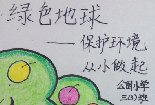 绿色地球
——保护环境
从小做起
公园小学
三(3)班